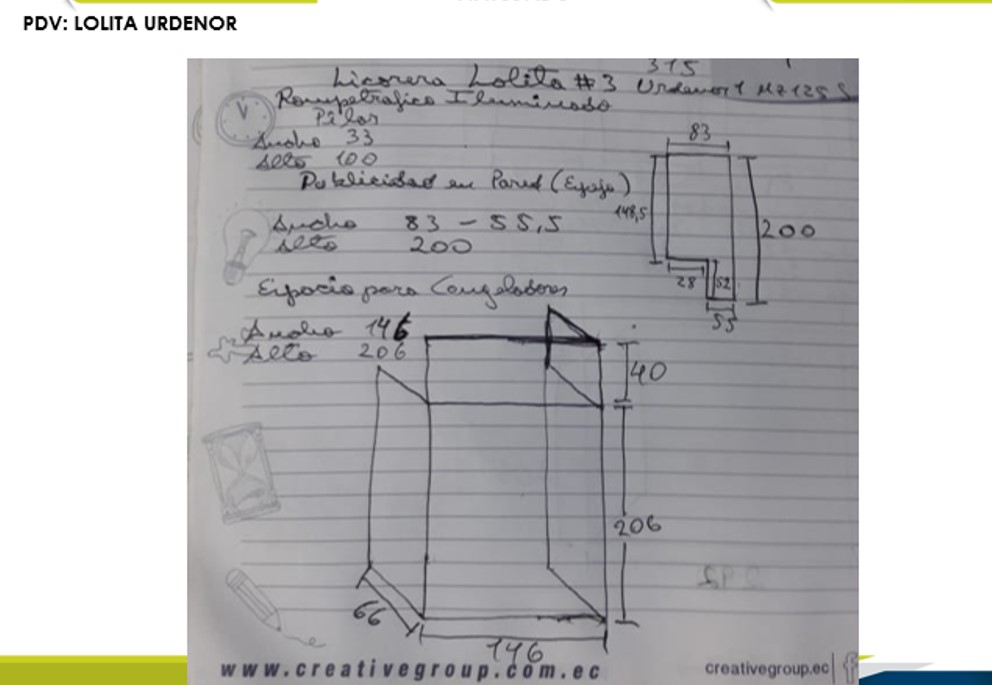 PDV: LOLITA URDENOR
315
Licorera Lolita #3 Urdenor 1 Mz 125 S
Rompetrafico Iluminado
Pilar
Ancho 33
Alto 100
Publicidad en Pared
Ancho 83 - 55,5
Alto 200
83
148,5
200
28
52
55
Espacio para Congeladores
Ancho 146
Alto 206
40
206
66
146
www.creativegroup.com.ec
creativegroup.ec